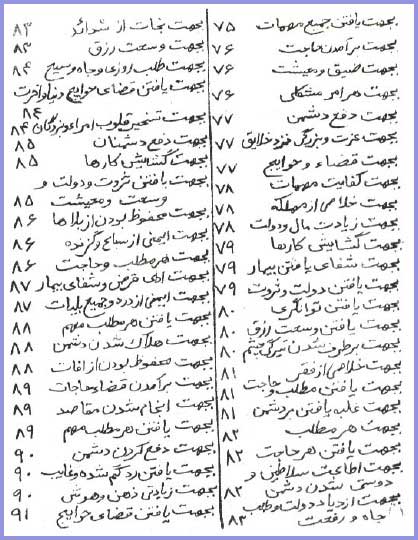 بجهت یافتن جمیع مهمات ۷۵
بجهت برآمدن حاجت ۷۶
بجهت ضیق و معیشت ۷۶
بجهت هر امر مشکلی ۷۶
بجهت دفع دشمن ۷۷
بجهت عزت و بزرگی نزد خلایق ۷۷
بجهت قضاء و حوایج ۷۷
بجهت کفایت مهمات ۷۸
بجهت خلاصی از مهلکه ۷۸
بجهت زیادت مال و دولت ۷۸
بجهت گشایش کارها ۷۹
بجهت شفای یافتن بیمار ۷۹
بجهت یافتن دولت و ثروت ۷۹
بجهت یافتن توانگری ۸۰
بجهت یافتن وسعت رزق ۸۰
بجهت برطرف شدن تیرگی چشم ۸۰
بجهت خلاصی از فقر ۸۱
بجهت یافتن مطلب و حاجت ۸۱
بجهت غلبه یافتن بر دشمن ۸۱
بجهت هر مطلب ۸۲
بجهت یافتن هر حاجت ۸۲
بجهت اطاعت سلاطین و
دوستی شدن دشمن ۸۲
بجهت ازدیاد دولت و طلب
جاه و رفعت ۸۳
بجهت نجات از شدائد ۸۳
بجهت وسعت رزق ۸۳
بجهت طلب روزی و جاه وسیع ۸۴
بجهت یافتن قضای حوایج دنیا و آخرت
۸۴
بجهت تسخیر قلوب امراء و بزرگان ۸۴
بجهت دفع دشمنان ۸۵
بجهت گشایش کارها ۸۵
بجهت یافتن ثروت و دولت و
وسعت و معیشت ۸۵
بجهت محفوظ بودن از بلاها ۸۶
بجهت ایمنی از سباع و گزنده ۸۶
بجهت هر مطلب و حاجت ۸۶
بجهت ادای قرض و شفای بیمار ۸۷
بجهت ایمنی از درد و جمیع بلیات ۸۷
بجهت یافتن هر مطلب مهم ۸۸
بجهت هلاک شدن دشمن ۸۸
بجهت محفوظ بودن از آفات ۸۸
بجهت برآمدن قضاء حاجات ۸۹
بجهت انجام شدن مقاصد ۸۹
بجهت یافتن هر مطلب مهم ۸۹
بجهت دفع کردن دشمن ۹۰
بجهت یافتن رد گم شده و غایب ۹۰
بجهت زیادتی ذهن و هوش ۹۰
بجهت یافتن قضای حوایج ۹۱